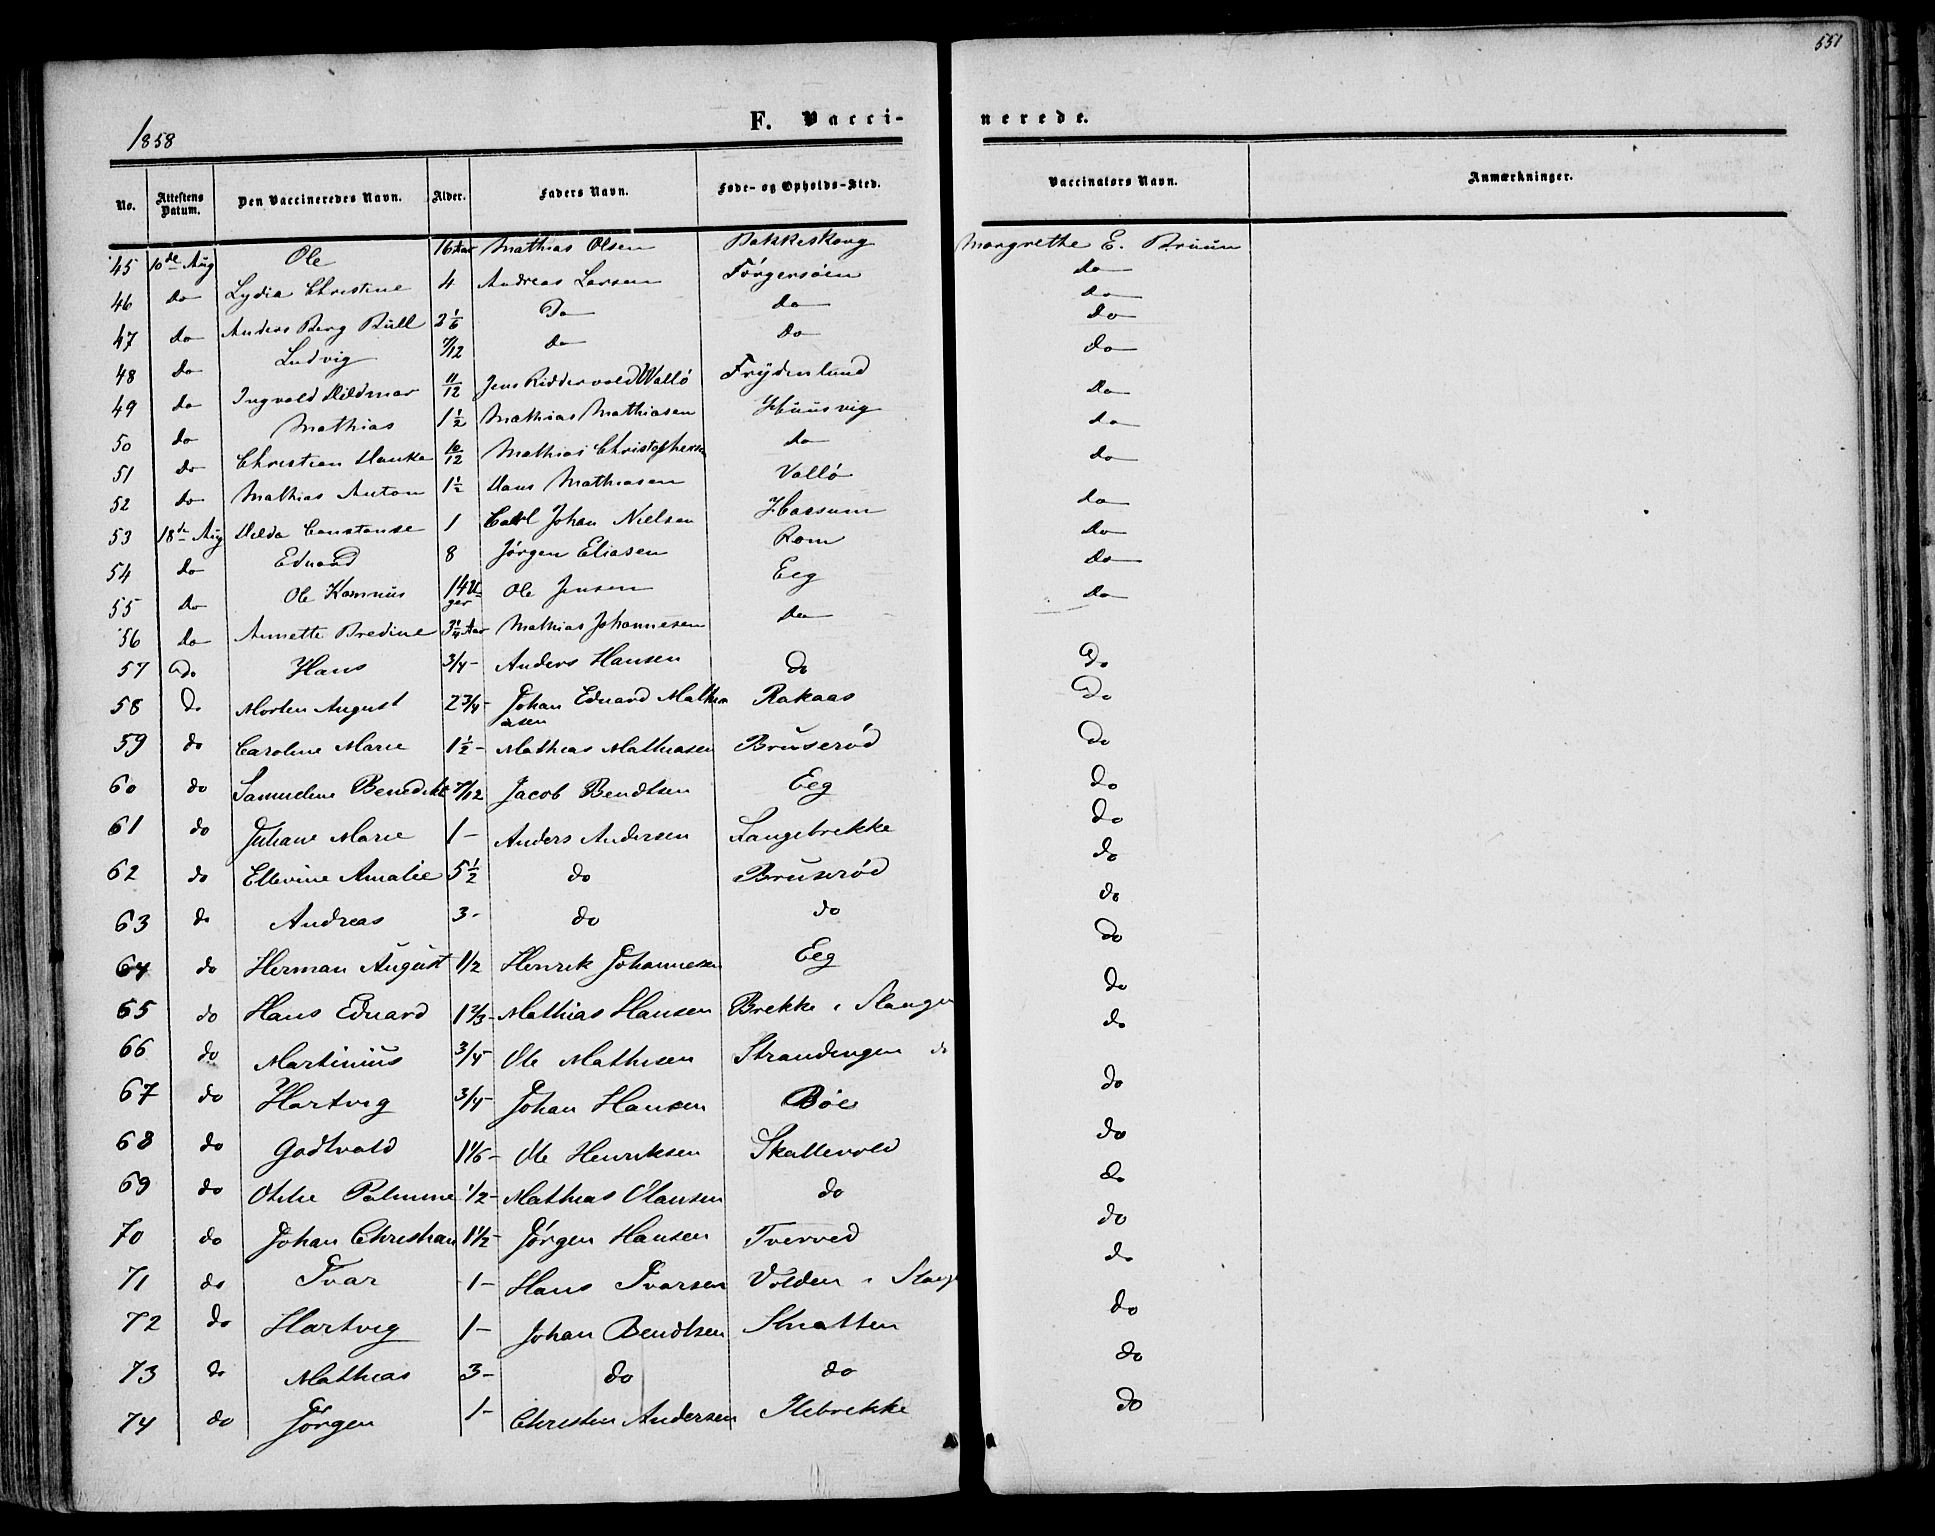 551
1858
F. Vaccinerede.
No. Attestens Datum. Den Vaccineredes Navn. Alder. Faders Navn. Føde- og Opholds-Sted. Vaccinators Navn. Anmærkninger.
45 10de Aug Ole 16 Aar Mathias Olsen Bakkeskoug Margrethe E. Bruun
46 do Lydia Christine 4 Andreas Larsen Jørgersøen do
47 do Anders Berg Bull 2 1/6 Do do do
48 do Ludvig 7/12 do do do
49 do Ingvald Hildmar 11/12 Jens Riddervold Wallö Frydenlund do
50 do Mathias 1 1/2 Mathias Mathiasen Huusvig do
51 do Christian Hanke 10/12 Mathias Christophersen do do
52 do Mathias Anton 1 1/2 Hans Mathiasen Vallö do
53 18de Aug Hilda Constanse 1 Carl Johan Nielsen Hassum do
54 do Eduard 8 Jörgen Eliasen Rom do
55 do Ole Komnius 14 Uger Ole Jensen Eeg do
56 do Annette Bredine 3 1/4 Aar Mathias Johannesen do do
57 Do Hans 3/4 - Anders Hansen do Do
58 do Morten August 2 3/4 - Johan Eduard Mathiasen Rakaas Do
59 do Caroline Marie 1 1/2 - Mathias Mathiasen Bruserød Do
60 do Samueline Benedikte 7/12 Jacob Bendtsen Eeg do
61 do Juliane Marie 1 - Anders Andersen Langebrekke do
62 do Ellevine Amalie 5 1/2 do Bruserød do
63 do Andreas 3 - do do do
64 do Herman August 1/2 Henrik Johannesen Eeg do
65 do Hans Eduard 1 2/3 - Mathias Hansen Brekke i Slangen do
66 do Martinius 3/4 - Ole Mathisen Strandengen do do
67 do Hartvig 3/4 - Johan Hansen Böe do
68 do Godtvald 1 1/6 - Ole Henriksen Skallevold do
69 do Othlie Palmine 1/2 - Mathias Olausen do do
70 do Johan Christian 1 1/2 - Jörgen Hansen Tverved do
71 do Ivar 1 - Hans Ivarsen Volden i Slang do
72 do Hartvig 1 - Johan Bendtsen Knatten do
73 do Mathias 3 - do do do
74 do Jörgen 1 - Christen Andersen Ilebrekke do